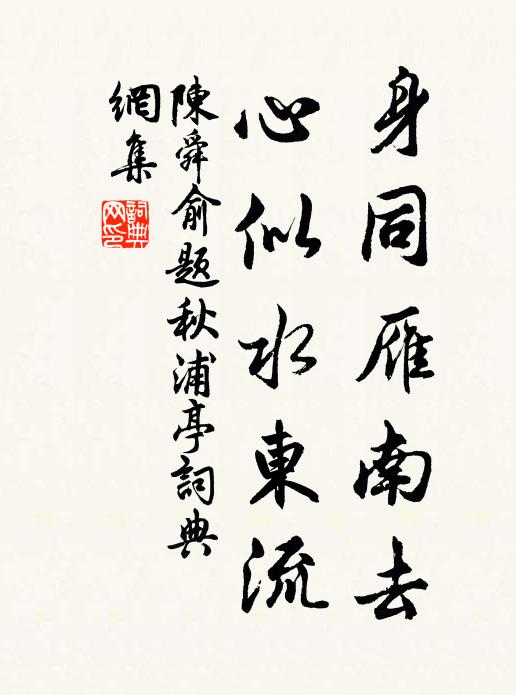 身同雁南去
心似水東流
陳舜俞題秋浦亭詞典
網集
詞典網印